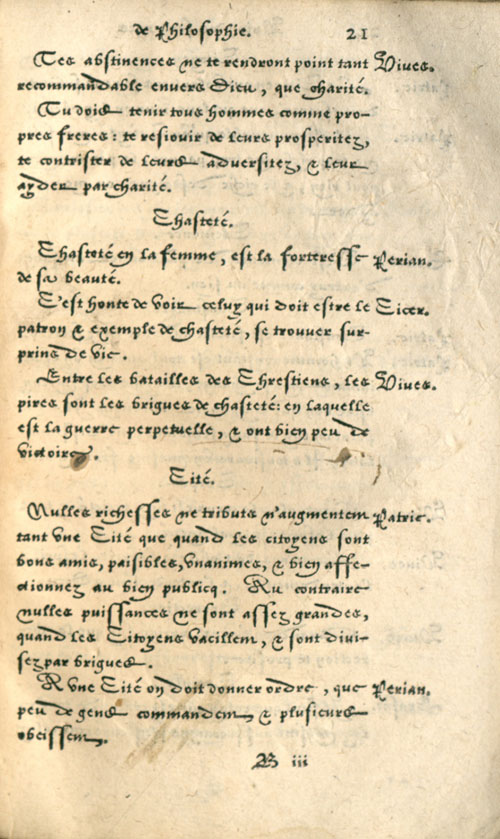 de Philosophie. 21
Tes abstinences ne te rendront point tant Vives.
recommandable envers Dieu, que charité.
Tu dois tenir tous hommes comme pro-
pres freres: te resiouir de leurs prosperitez,
te contrister de leurs adversitez, & leur
ayder par charité.
Chasteté.
Chasteté en la femme, est la forteresse Perian.
de sa beauté.
C'est honte de voir celuy qui doit estre le Cicer.
patron & exemple de chasteté, se trouver sur-
prins de vic.
Entre les batailles des Chrestiens, les Vives.
pires sont les brigues de chasteté: en laquelle
est la guerre perpetuelle, & ont bien peu de
victoires.
Cité.
Nulles richesses ne tributs n'augmentent Patric.
tant une Cité que quand les citoyens sont
bons amis, paisibles, unanimes, & bien affe-
ctionnez au bien publicq. Au contraire
nulles puissances ne sont assez grandes,
quand les Citoyens vacillent, & sont divi-
sez par brigues.
A une Cité on doit donner ordre, que Perian.
peu de gens commandent & plusieurs
obeissent.
B iii